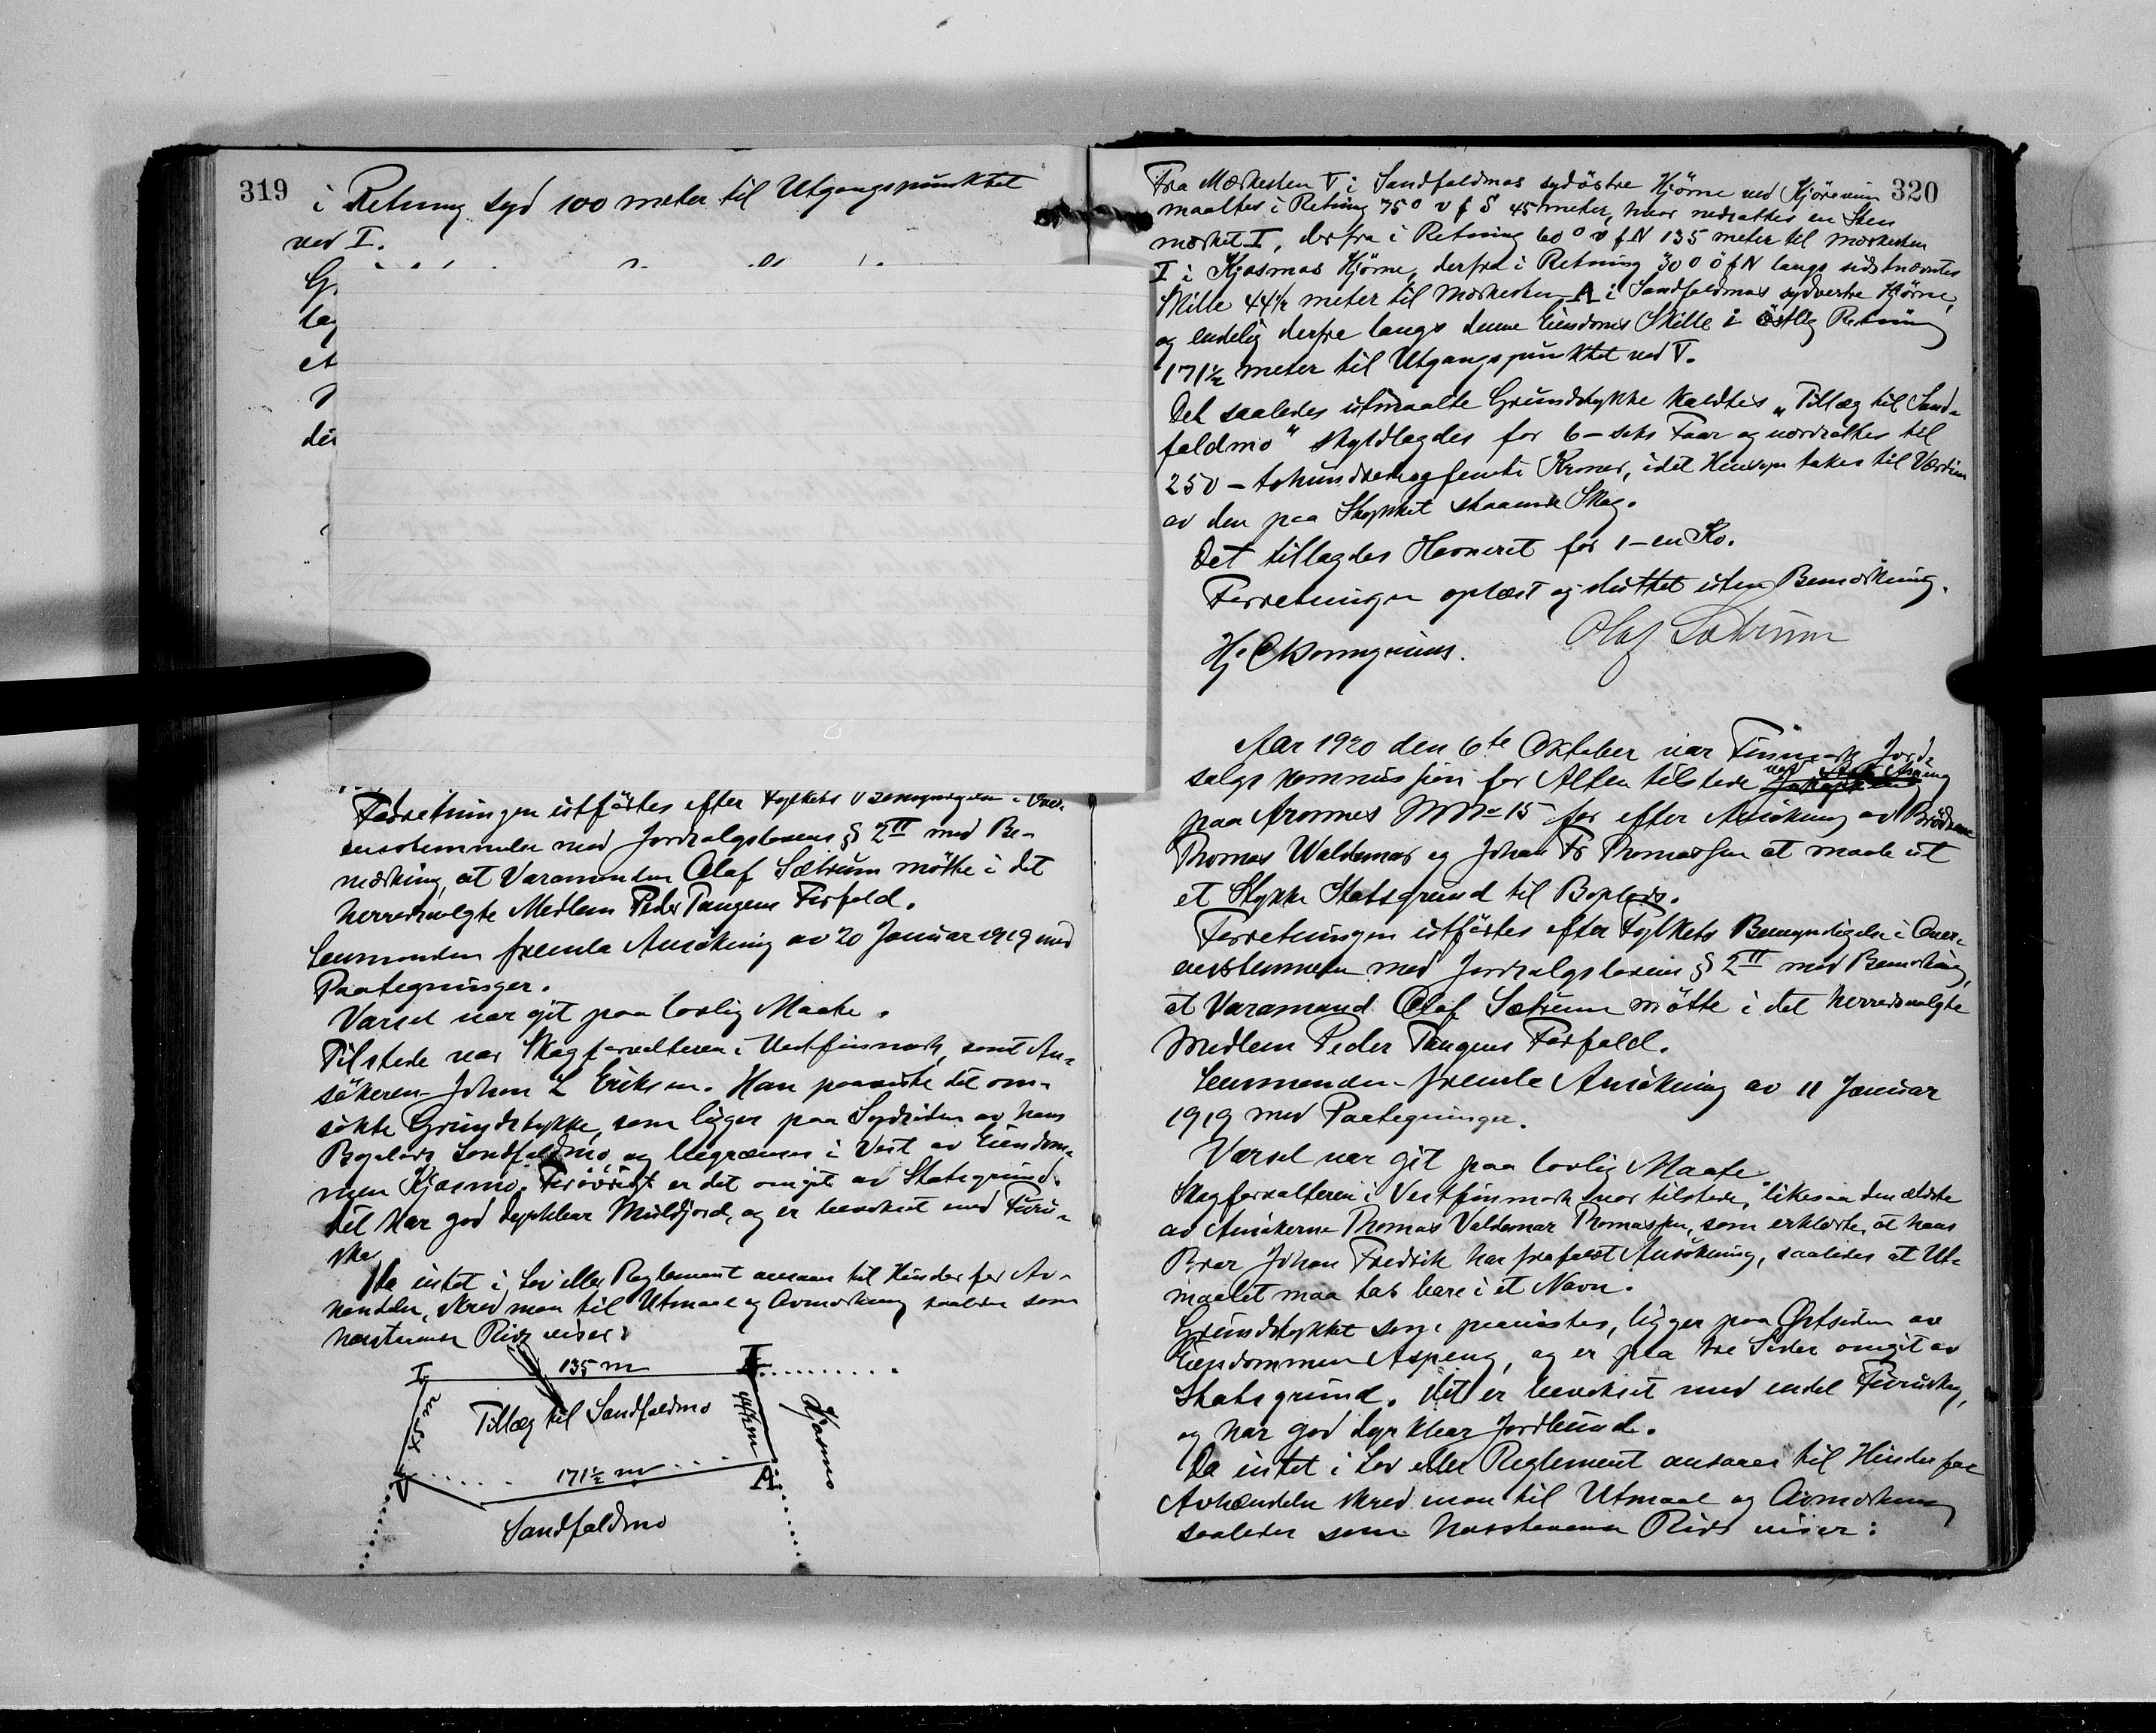 319
i Retning syd 100 meter til Utgangspunktet
ved I.
G
et
Forretningen utførtes efter Fylkets Bemyndigelse i Over-
ensstemmelse med Jordsalgslovens § 2 II med Be-
mærkning, at Varamanden Olaf Sætrum møtte i det
herredsvalgte Medlem Peder Tangens Forfald.
Lensmanden fremla Ansøkning av 20 Januar 1919 med
Paategninger.
Varsel var git paa lovlig Maate.
Tilstede var Skogforvalteren i Vestfinmark, samt An-
søkeren Johan L Eriksen. Han paaviste det om-
søkte Grundstykke, som ligger paa Sydsiden av hans
Bopelads Sandfaldmo, og begrænses i Vest av Eiendom-
men Kjosmo. Forøvrigt er det omgit av Statsgrund.
Det har god dyrkbar Muldjord, og er bevokset med Furu-
skog
Da intet i Lov eller Reglement ansaaes til Hinder for Av-
hændelse, skred man til Utmaal og Avmerkning saaledes som
hosstaaende Rids viser:
I 135 m I
45 m
Tillæg til Sandfaldmo
44½ m
Kjosmo
V 171½ m A
Sandfaldmo
320
Fra Merkesten V i Sandfaldmos sydøstre Hjørne ved Kjøreveien
maaltes i Retning 75° v f S 45 meter, hvor nedsattes en Sten
merket I, derfra i Retning 60° v f N 135 meter til Merkesten
I i Kjosmos Hjørne, derfra i Retning 30° ø f N langs sidstnævntes
Skille 44½ meter til Merkesten A i Sandfaldmos sydvestre Hjørne,
og endelig derfra langs denne Eiendoms Skille i østlig Retning
171½ meter til Utgangspunktet ved V.
Det saaledes utmaalte Grundstykke kaldtes „Tillæg til Sand-
faldmo" skyldlagdes for 6 - seks Øre og værdsattes til
250 - tohundredeogfemti Kroner, idet Hensyn takes til Værdien
av den paa Stykket staaende Skog.
Det tillagdes Havneret for 1 - en Ko.
Forretningen oplæst og sluttet uten Bemærkning.
Olaf Sætrum
Aar 1920 den 6te Oktober var Finmark Jord-
salgs kommission for Alten tilstede ved Aspeng
paa Aronnes MNo 15 for efter Ansøkning av Brødrene
Thomas Waldemar og Johan Fr Thomassen at maale ut
et Stykke Statsgrund til Boplads.
Forretningen utførtes efter Fylkets Bemyndigelse i Over-
ensstemmelse med Jordsalgslovens § 2 II med Bemerkning,
at Varamand Olaf Sætrum møtte i det herredsvalgte
Medlem Peder Tangens Forfald.
Lensmanden fremla Ansøkning av 11 Januar
1919 med Paategninger.
Varsel var git paa lovlig Maate
Skogforvalteren i Vestfinmark var tilstede, likesaa den ældste
av Ansøkerne Thomas Valdemar Thomassen, som erklærte, at hans
Bror Johan Fredrik har frafaldt Ansøkning, saaledes at Ut-
maalet maa tas bare i et Navn.
Grundstykket som paavistes, ligger paa Østsiden av
Eiendommen Aspeng, og er paa tre Sider omgit av
Statsgrund. Det er bevokset med endel Furuskog,
og har god dyrkbar Jordbund.
Da intet i Lov eller Reglement ansaaes til Hinder for
Avhændelse skred man til Utmaal og Avmerkning
saaledes som hosstaaende Rids viser: